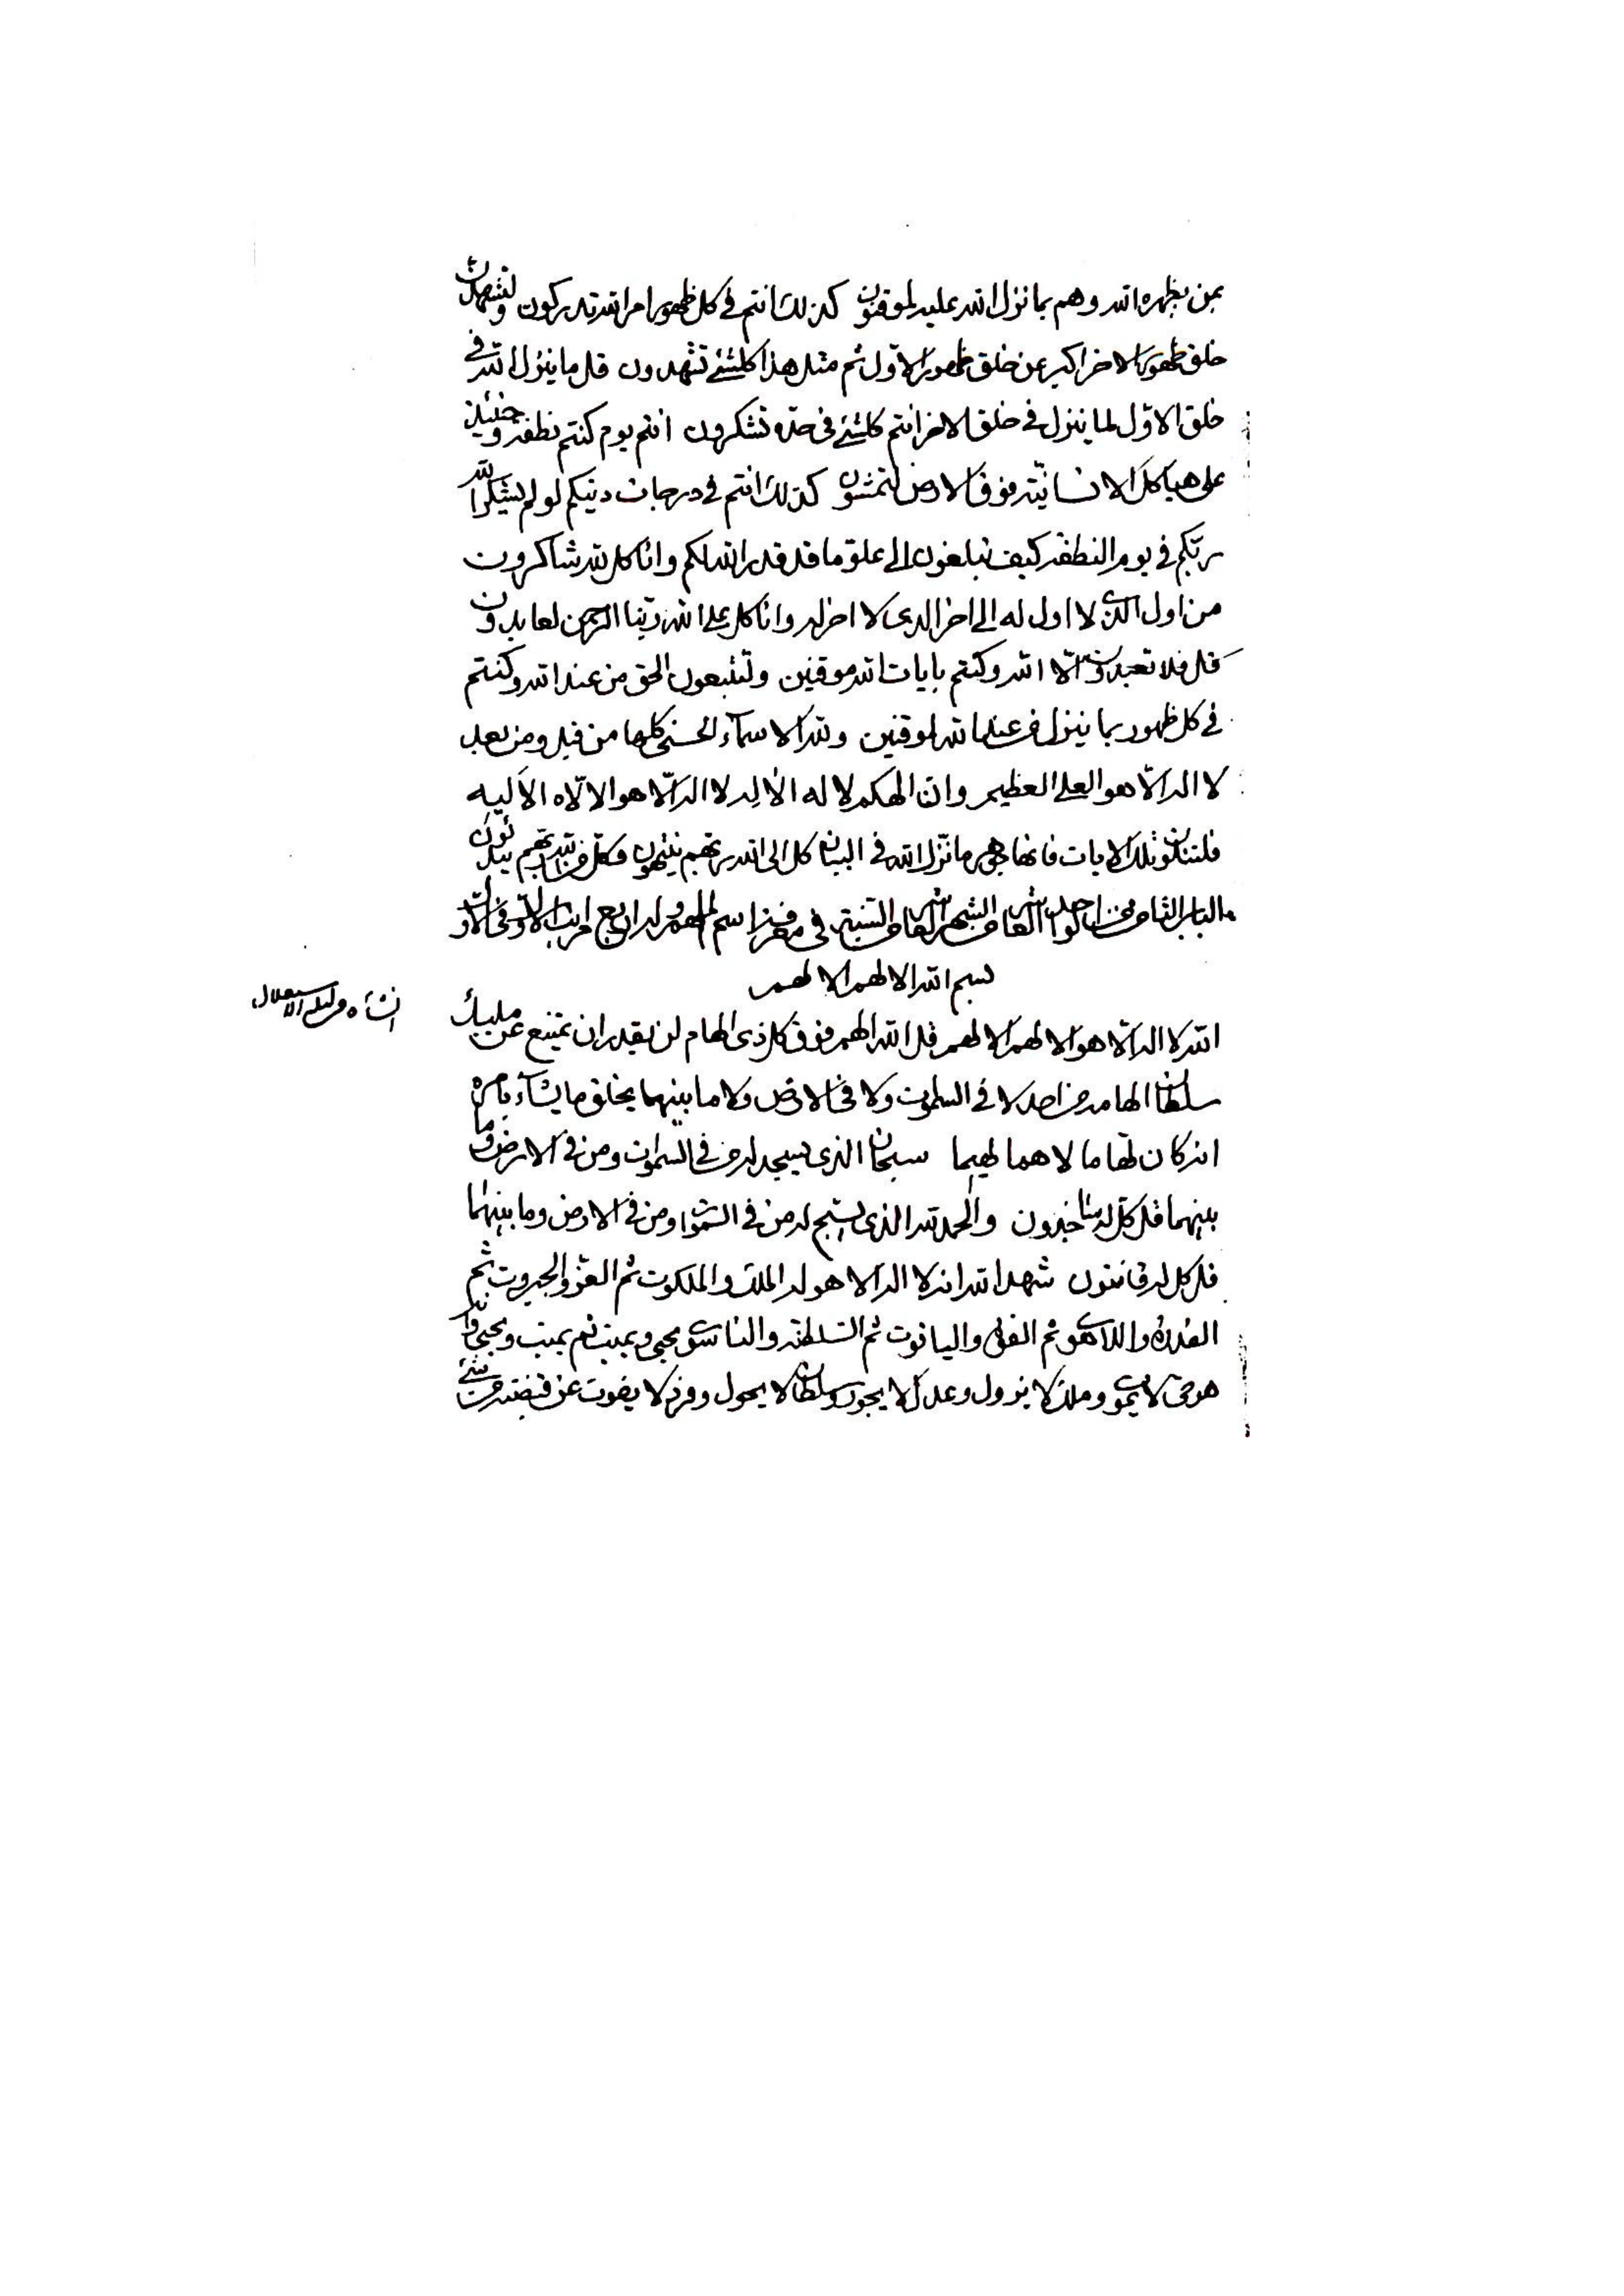 بمن يظهره الله وهم بما نزل الله عليه لموقنون كذلك انتم في كل ظهور امر الله تدركون ولتشهدن
خلق ظهور الاخر اكبر عن خلق ظهور الاول ثم مثل هذا كلشئ تشهدون قل ما ينزل الله في
خلق الاول لما ينزل في خلق الاخر انتم كلشئ في حده تشكرون انتم يوم كنتم نطفة وحينئذ
على هياكل الانسانية فوق الارض لتمشون كذلك انتم في درجات دينكم لو لم يشكرالله
ربكم في يوم النطفة كيف تبلغون الى علو ما قد قدر الله لكم وانا كل لله شاكرون
من اول الذي لا اول له الى اخر الذي لا اخر له وانا كل على الله ربنا الرحمن لعابدون
قل فلا تعبدون الا الله وكنتم بايات الله موقنين ولتتبعون الحق من عند الله وكنتم
في كل ظهور بما ينزل من عند الله لموقنين ولله الاسماء الحسنى كلها من قبل ومن بعد
لا اله الا هو العلي العظيم وان الهكم لاله الاله لا اله الا هو الالاه الاليه
فلتتلون تلك الايات فانها هي ما نزل الله في البيان كل الى الله ربهم ينتهون وكل من الله ربهم يبدئون
الباب الثامن من الواحد العاشر الشهر العاشر السنة في معرفة اسم الملهم وله اربع مراتب الاول في الاول
بسم الله الالهم الالهم
الله لا اله الا هو الالهم الالهم قل الله الهم فوق كل ذي الهام لن يقدر ان يمتنع عن مليك
سلطان الهامه من احد لا في السموات ولا في الارض ولا ما بينهما يخلق ما يشاء بامره
انه كان لهاما لاهما لهيما سبحان الذي يسجد له من في السموات ومن في الارض وما
بينهما قل كل له ساجدون والحمد لله الذي يسبح له من في السموات ومن في الارض وما بينهما
قل كل له قانتون شهد الله انه لا اله الا هو له الملك والملكوت ثم العز والجبروت ثم
القدرة واللاهوت ثم القوة والياقوت ثم السلطنة والناسوت يحيي ويميت ثم يميت ويحيي وانه
هو حي لا يموت وملك لا يزول وعدل لا يجور وسلطان لا يحول وفرد لا يفوت عن قبضته من شئ